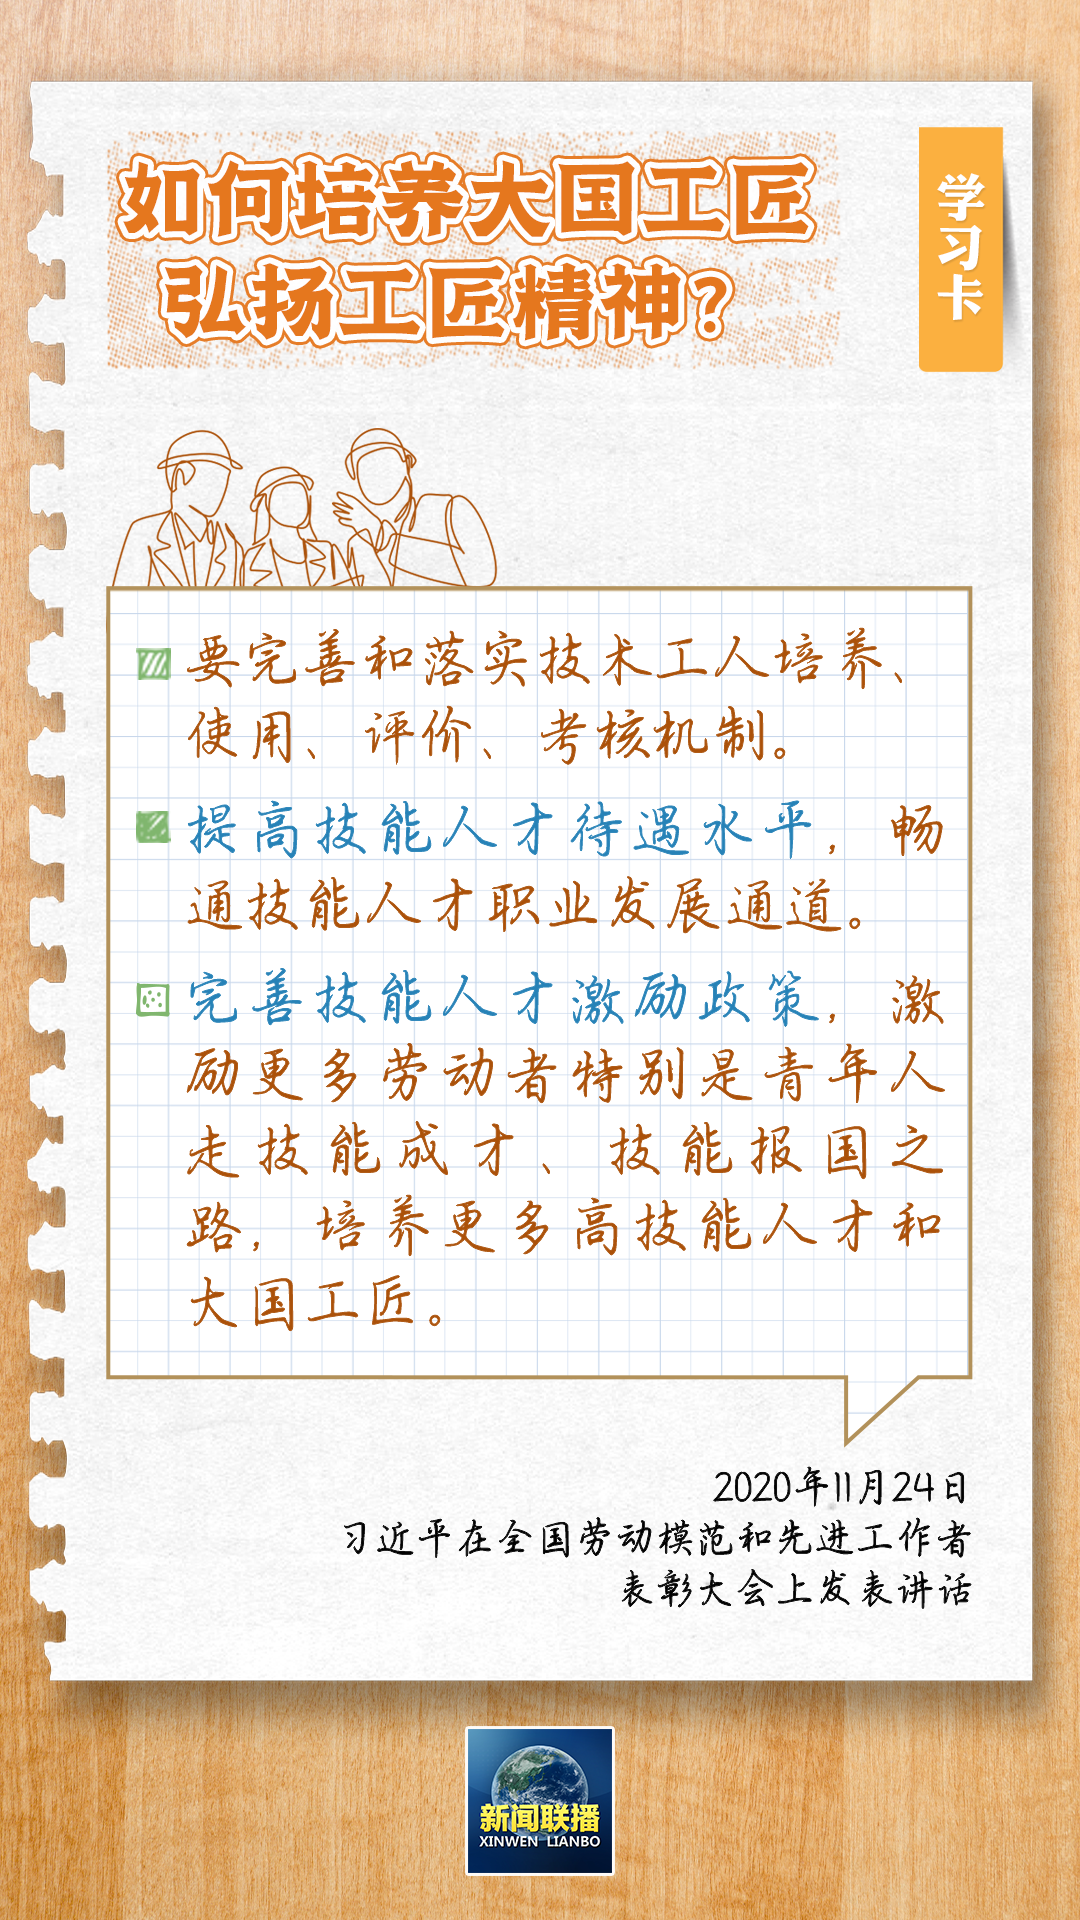 如何培养大国工匠
弘扬工匠精神？
学习卡
要完善和落实技术工人培养、
使用、评价、考核机制。
提高技能人才待遇水平，畅
通技能人才职业发展通道。
完善技能人才激励政策，激
励更多劳动者特别是青年人
走技能成才、技能报国之
路，培养更多高技能人才和
大国工匠。
2020年11月24日
习近平在全国劳动模范和先进工作者
表彰大会上发表讲话
新闻联播
XINWEN LIANBO